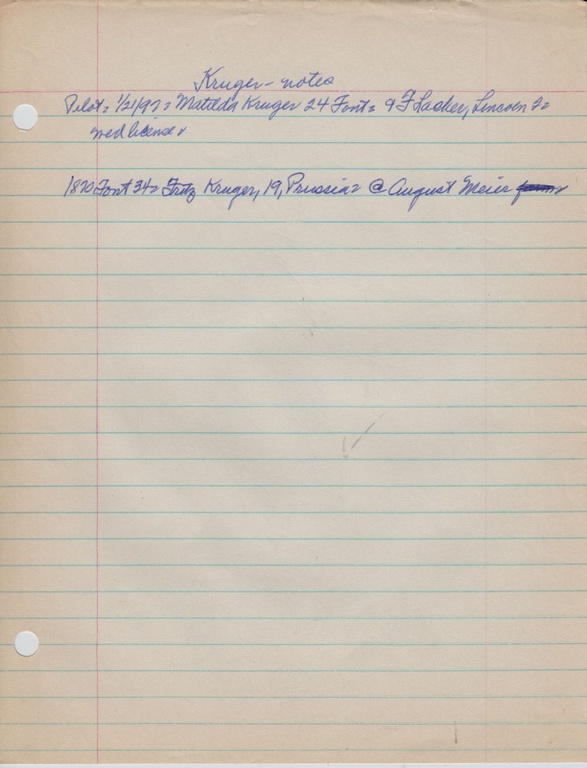 Kruger - notes
Pilot = 1/21/97 = Matilda Kruger 24 Font = 9 F Lasher, Lincoln =
wed license
1870 Font 34 = Fritz Kruger, 19, Prussia = @ August Meier